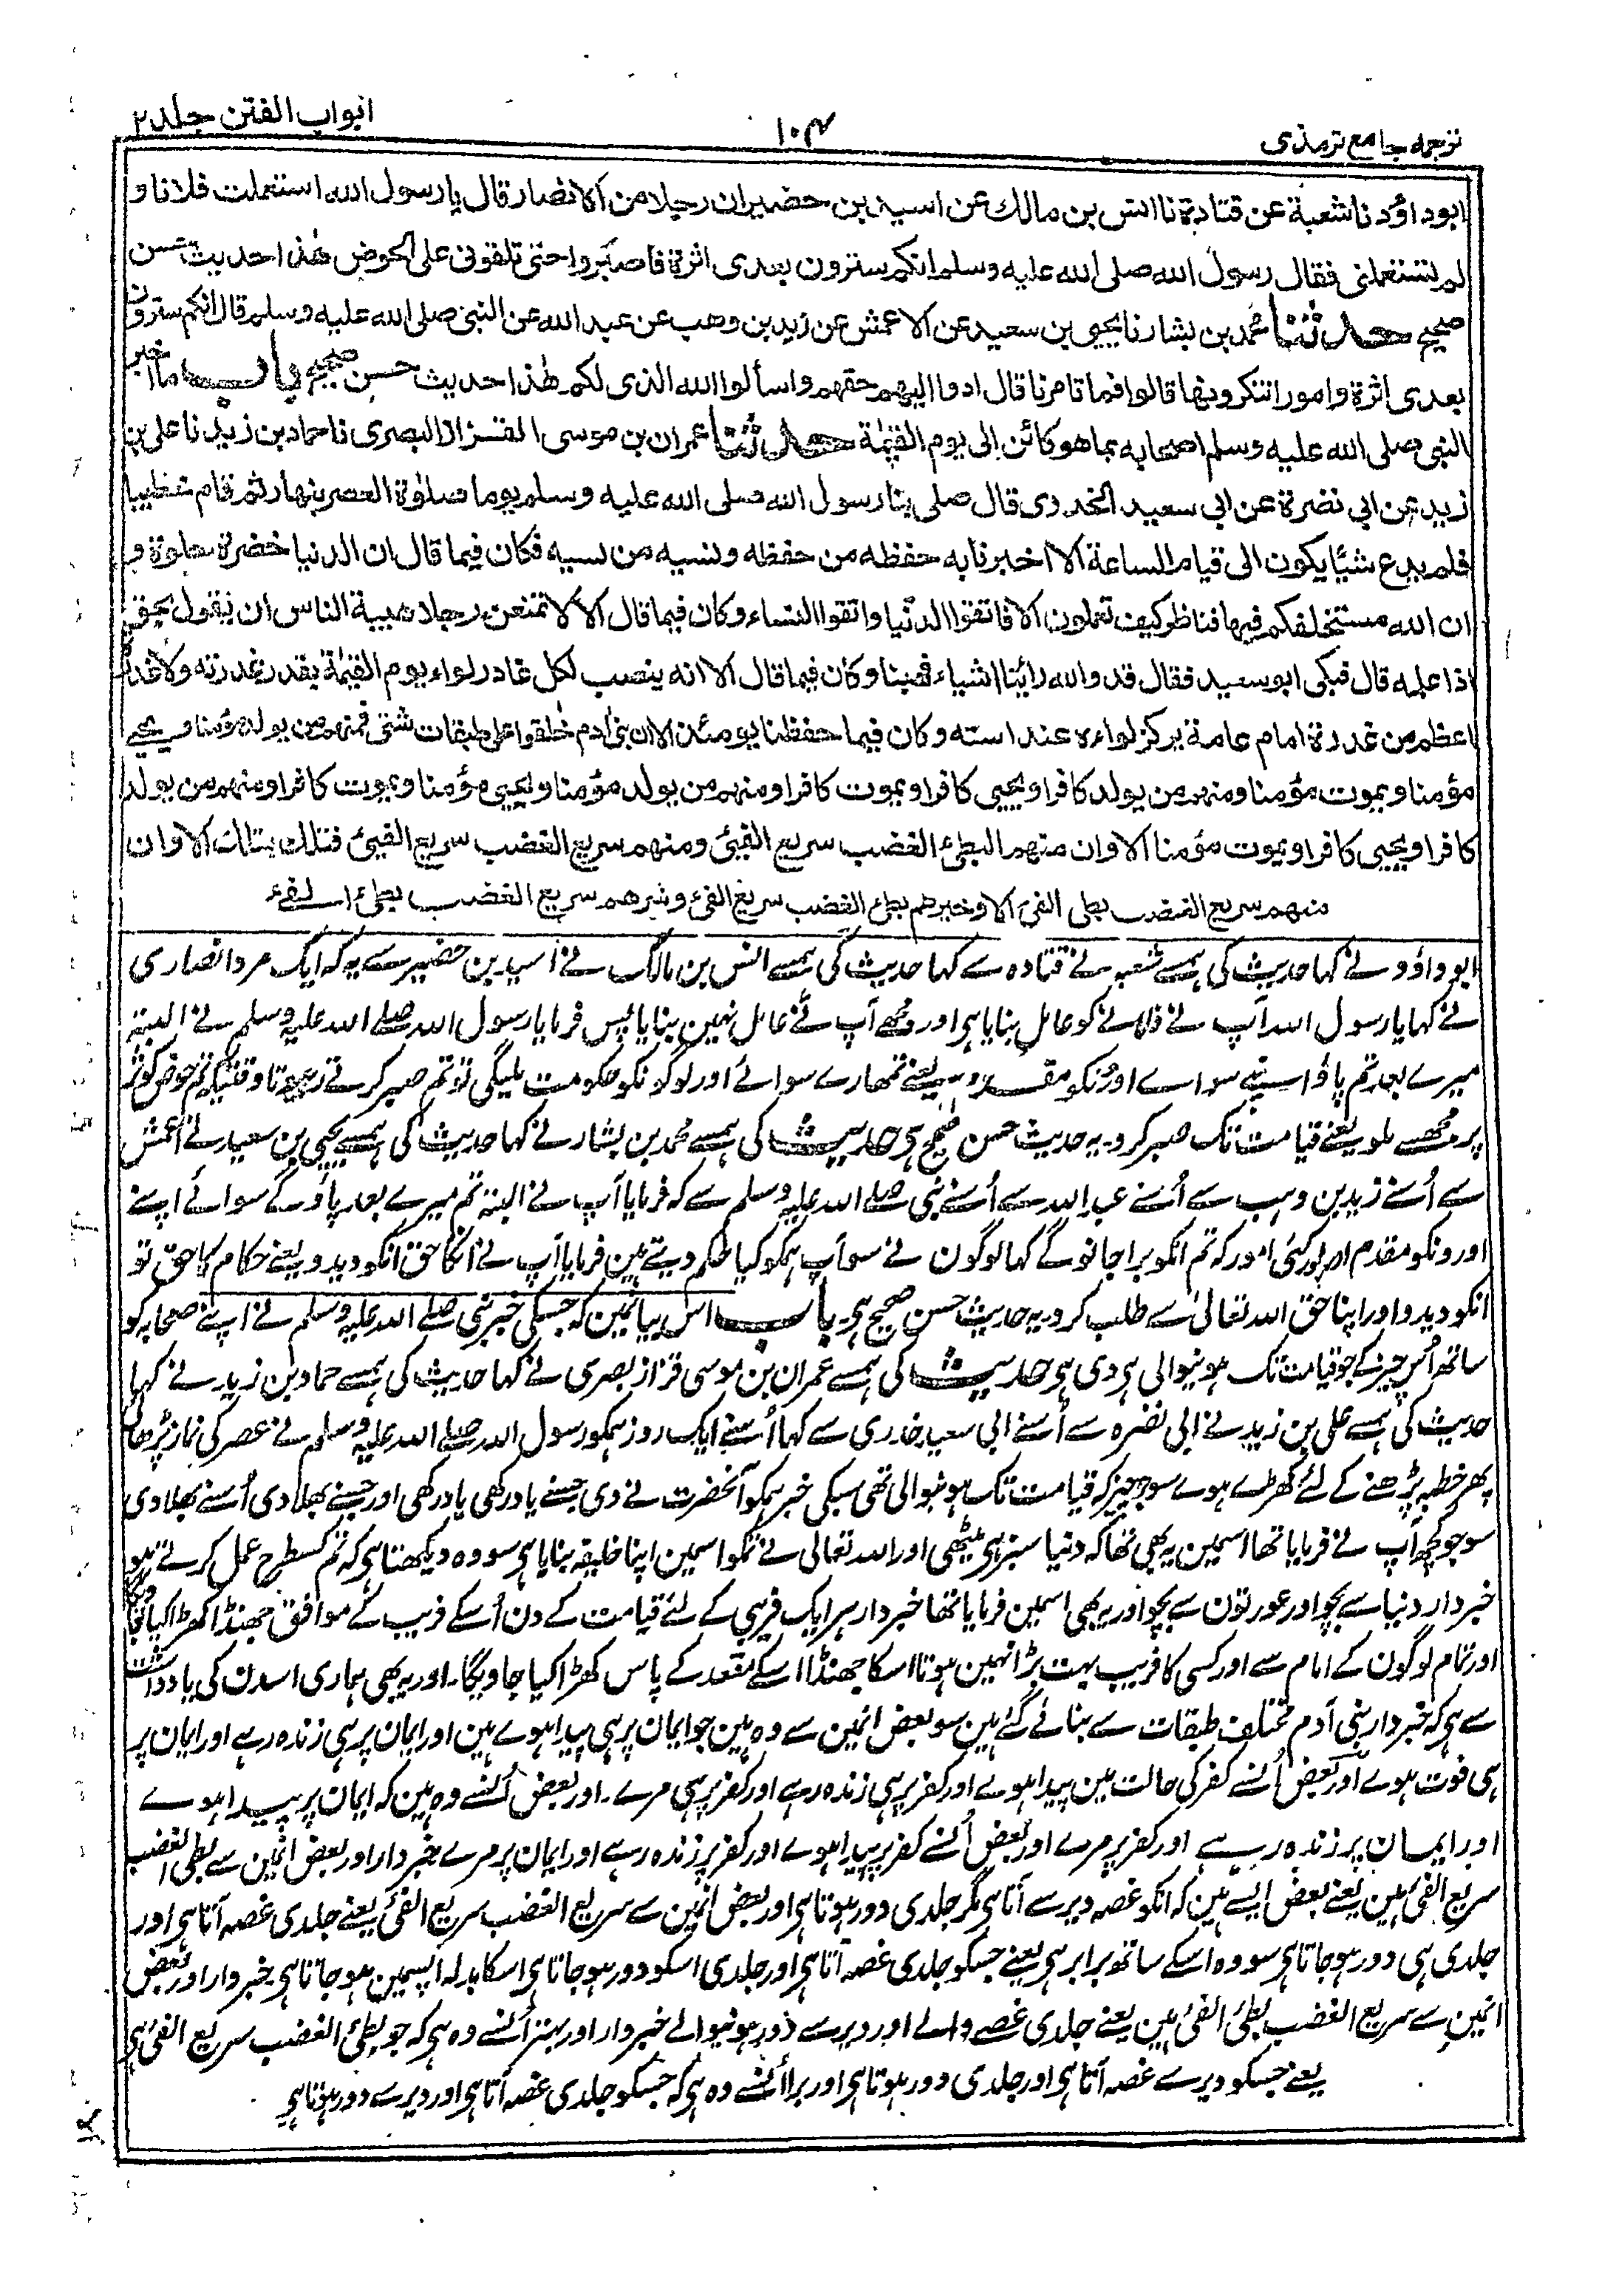 ترجمه جامع ترمذی
۱۰۴
ابواب الفتن جلد۲
ابوداؤد نا شعبة عن قتادة نا انس بن مالك عن اسيد بن حضير ان رجلا من الانصار قال يا رسول الله استعملت فلانا و
لم تستعملنى فقال رسول الله صلى الله عليه وسلم انكم سترون بعدى اثرة فاصبروا حتى تلقونى على الحوض هذا حديث حسن
صحيح حدثنا محمد بن بشار نا يحيى بن سعيد عن الاعمش عن زيد بن وهب عن عبد الله عن النبى صلى الله عليه وسلم قال انكم سترون
بعدى اثرة وامورا تنكرونها قالوا فما تامرنا قال ادوا اليهم حقهم واسألوا الله الذى لكم هذا حديث حسن صحيح باب ما اخبر
النبى صلى الله عليه وسلم اصحابه بما هو كائن الى يوم القيمة حدثنا عمران بن موسى القزاز البصرى نا حماد بن زيد نا على بن
زيد عن ابى نضرة عن ابى سعيد الخدرى قال صلى بنا رسول الله صلى الله عليه وسلم يوما صلوة العصر بنهار ثم قام خطيبا
فلم يدع شيئا يكون الى قيام الساعة الا اخبرنا به حفظه من حفظه ونسيه من نسيه فكان فيما قال ان الدنيا خضرة حلوة و
ان الله مستخلفكم فيها فناظر كيف تعملون الا فاتقوا الدنيا واتقوا النساء وكان فيما قال الا لا تمنعن رجلا هيبة الناس ان يقول بحق
اذا علمه قال فبكى ابو سعيد فقال قد والله رائينا اشياء فهبنا وكان فيما قال الا انه ينصب لكل غادر لواء يوم القيمة بقدر غدرته ولا غدرة
اعظم من غدرة امام عامة يركز لواءه عند استه وكان فيما حفظنا يومئذ الا ان بنى ادم خلقوا على طبقات شتى فمنهم من يولد مؤمنا ويحيى
مؤمنا ويموت مؤمنا ومنهم من يولد كافرا ويحيى كافرا ويموت كافرا ومنهم من يولد مؤمنا ويحيى مؤمنا ويموت كافرا ومنهم من يولد
كافرا ويحيى كافرا ويموت مؤمنا الا وان منهم البطئ الغضب سريع الفيئ ومنهم سريع الغضب سريع الفيئ فتلك بتلك الا وان
منهم سريع الغضب بطى الفئ الا وخيرهم بطئ الغضب سريع الفئ وشرهم سريع الغضب بطئ الفئ
ابو داؤد نے کہا حدیث کی ہمسے شعبہ نے قتادہ سے کہا حدیث کی ہمسے انس بن مالک نے اسید بن حضیر سے یہ کہ ایک مرد انصاری
نے کہا یا رسول اللہ آپ نے فلانے کو عامل بنایا ہی اور مجھے آپ نے عامل نہین بنایا پس فرمایا رسول اللہ صلے اللہ علیہ وسلم نے البتہ
میرے بعد تم پاؤ اپنے سواے اورونکو مقدم یعنے تمھارے سوائے اور لوگونکو حکومت ملیگی تو تم صبر کرتے رہیو تا وقتیکہ تم حوض کوثر
پر مجھسے ملو یعنے قیامت تک صبر کرو۔ یہ حدیث حسن صحیح ہی حدیث کی ہمسے محمد بن بشار نے کہا حدیث کی ہمسے یحیی بن سعید نے اعمش
سے اُسنے زید بن وہب سے اُسنے عبد اللہ سے اُسنے نبی صلے اللہ علیہ وسلم سے کہ فرمایا آپ نے البتہ تم میرے بعد پاؤ گے سوائے اپنے
اورونکو مقدم اور کئی امور کہ تم انکو برا جانو گے کہا لوگون نے سو آپ ہمکو کیا حکم دیتے ہین فرمایا آپ نے انکا حق انکو دیدو یعنے حکام کا حق تو
انکو دیدو اور اپنا حق اللہ تعالیٰ سے طلب کرو۔ یہ حدیث حسن صحیح ہی باب اس بیانمین کہ جسکی خبر نبی صلے اللہ علیہ وسلم نے اپنے صحابہ کو
ساتھ اُس چیز کے جو قیامت تک ہونیوالی ہی دی ہی حدیث کی ہمسے عمران بن موسی قزاز بصری نے کہا حدیث کی ہمسے حماد بن زید نے کہا
حدیث کی ہمسے علی بن زید نے ابی نضرہ سے اُسنے ابی سعید خدری سے کہا اُسنے ایک روز ہمکو رسول اللہ صلے اللہ علیہ وسلم نے عصر کی نماز پڑھائی
پھر خطبہ پڑھنے کے لئے کھڑے ہوے سو جو چیز کہ قیامت تک ہونیوالی تھی سبکی خبر ہمکو آنحضرت نے دی جسنے یاد رکھی یاد رکھی اور جسنے بھلا دی اُسنے بھلا دی
سو جو کچھ آپ نے فرمایا تھا اسمین یہ بھی تھا کہ دنیا سبز ہی میٹھی اور اللہ تعالی نے تمکو اسمین اپنا خلیفہ بنایا ہی سو وہ دیکھتا ہی کہ تم کسطرح عمل کرتے ہو
خبردار دنیا سے بچو اور عورتون سے بچو اور یہ بھی اسمین فرمایا تھا خبردار ہر ایک فریبی کے لئے قیامت کے دن اُسکے فریب کے موافق جھنڈا کھڑا کیا جاویگا
اور تمام لوگون کے امام سے اور کسی کا فریب بہت بڑا نہین ہوتا اسکا جھنڈا اسکے مقعد کے پاس کھڑا کیا جاویگا۔ اور یہ بھی ہماری اسدن کی یادداشت
سے ہی کہ خبردار بنی آدم مختلف طبقات سے بنائے گئے ہین سو بعض انمین سے وہ ہین جو ایمان پر ہی پیدا ہوے ہین اور ایمان پر ہی زندہ رہے اور ایمان پر
ہی فوت ہوے اور بعض اُنسے کفر کی حالت مین پیدا ہوے اور کفر پر ہی زندہ رہے اور کفر پر ہی مرے۔ اور بعض اُنسے وہ ہین کہ ایمان پر پیدا ہوے
اور ایمان پر زندہ رہے اور کفر پر مرے اور بعض اُنسے کفر پر پیدا ہوے اور کفر پر زندہ رہے اور ایمان پر مرے خبردار اور بعض انمین سے بطی الغضب
سریع الفئ ہین یعنے بعض ایسے ہین کہ انکو غصہ دیر سے آتا ہی مگر جلدی دور ہوتا ہی اور بعض انمین سے سریع الغضب سریع الفئ یعنے جلدی غصہ آتا ہی اور
جلدی ہی دور ہو جاتا ہی سو وہ اسکے ساتھ برابر ہی یعنے جسکو جلدی غصہ آتا ہی اور جلدی اسکو دور ہو جاتا ہی اسکا بدلہ اپسمین ہو جاتا ہی خبردار اور بعض
انمین سے سریع الغضب بطئ الفئ ہین یعنے جلدی غصے والے اور دیر سے دور ہونیوالے خبردار اور بہتر اُنسے وہ ہی کہ جو بطئ الغضب سریع الفئ ہی
یعنے جسکو دیر سے غصہ آتا ہی اور جلدی دور ہوتا ہی اور برا اُنسے وہ ہی کہ جسکو جلدی غصہ آتا ہی اور دیر سے دور ہوتا ہی